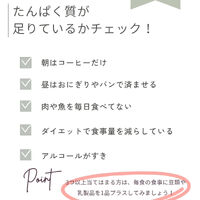 たんぱく質が
足りているかチェック!
朝はコーヒーだけ
昼はおにぎりやパンで済ませる
肉や魚を毎日食べてない
ダイエットで食事量を減らしている
アルコールがすき
Point
3つ以上当てはまる方は、毎食の食事に豆類や
乳製品を1品プラスしてみましょう!